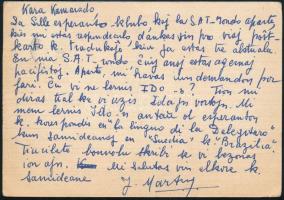 Kara Kamarado.
La Lille esperanto klubo kaj la S.A.T. rondo aparte,
kiu mi estas respondanto dankas vin pro viaj poŝt-
karto k. Tradukojo kiu ja estas tre
En nia S.A.T. rondo ĉiuj anoj estas agemaj
pacifistoj. Aparte, mi havas un demandon por
fari. Ĉu vi ne lernis IDO -n? Tion mi
diras tial ke vi uzis Idajn vortojn. Mi
mem lernis Ido-n antaŭ ol esperanton
k. korespondis en "la linguo di la Delegitaro"
kun samideanoj en "Suedia" k "Brazilia".
bonvolu skribi k. vi bezonas
ion ajn. Mi salutas vin elkore k.
samideane
J. Martin